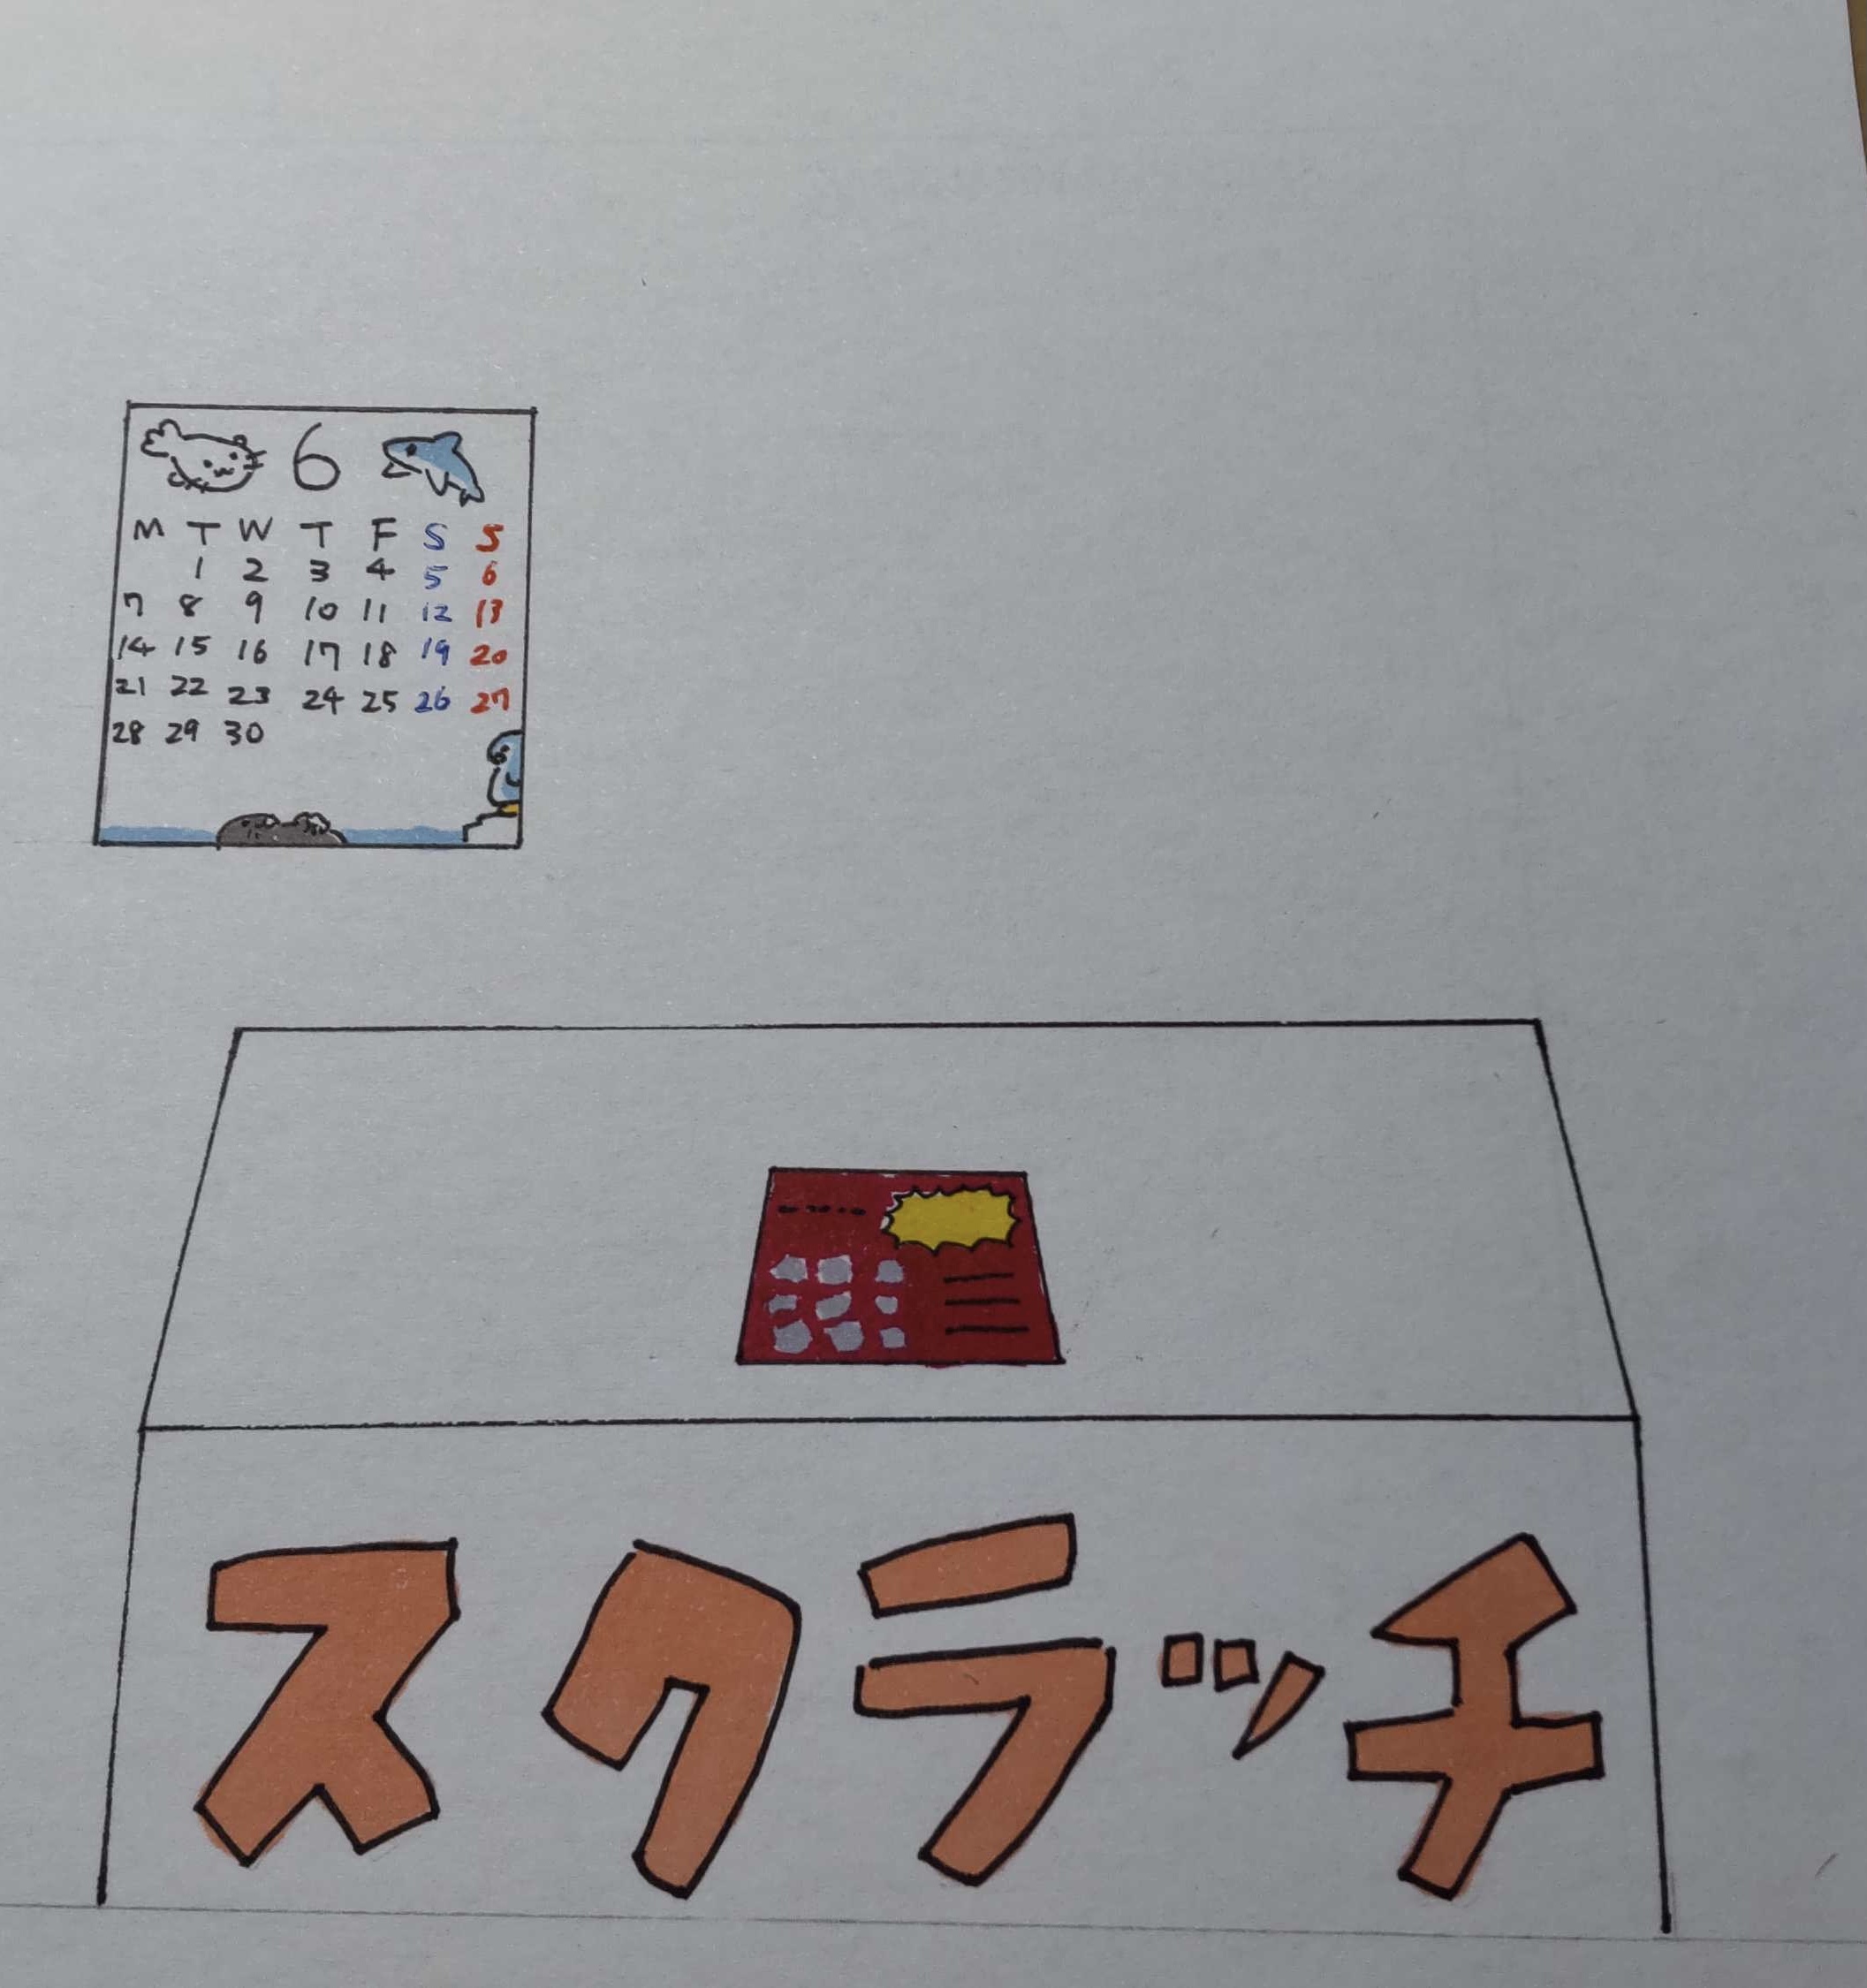 6
M T W T F S S
1 2 3 4 5 6
7 8 9 10 11 12 13
14 15 16 17 18 19 20
21 22 23 24 25 26 27
28 29 30
スクラッチ